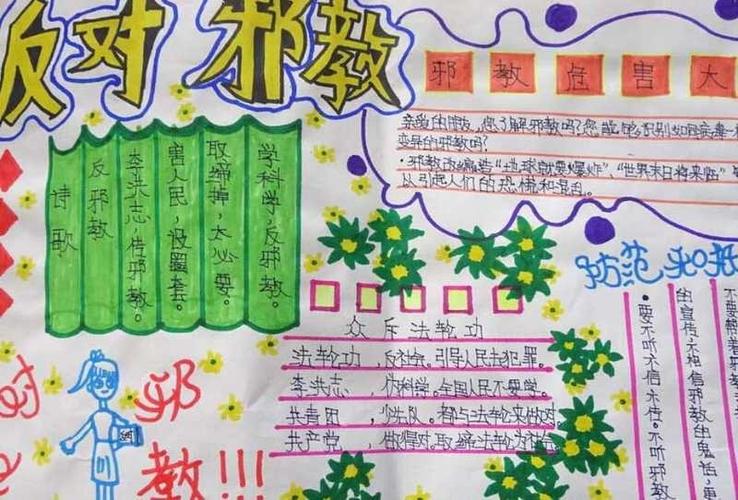 反对邪教
邪教危害大
亲爱的朋友,您了解邪教吗?您能识别如同病毒一
变异的邪教吗?
·邪教改编造“地球就要爆炸”,“世界末日将来临”
以引起人们的恐怖和混乱。
诗歌
反邪教
李洪志,传邪教。
害人民,设圈套。
取缔掉,太必要。
学科学,反邪教。
防范
众斥法轮功
法轮功 反社会。引导人民去犯罪。
李洪志,伪科学。全国人民不要学。
共青团,少先队。都与法轮来做对
共产党,做得对。取缔法轮为
·要不听不信不传。不听邪教
的宣传不相信邪教的鬼话,
不要帮着邪教
邪
教!!!